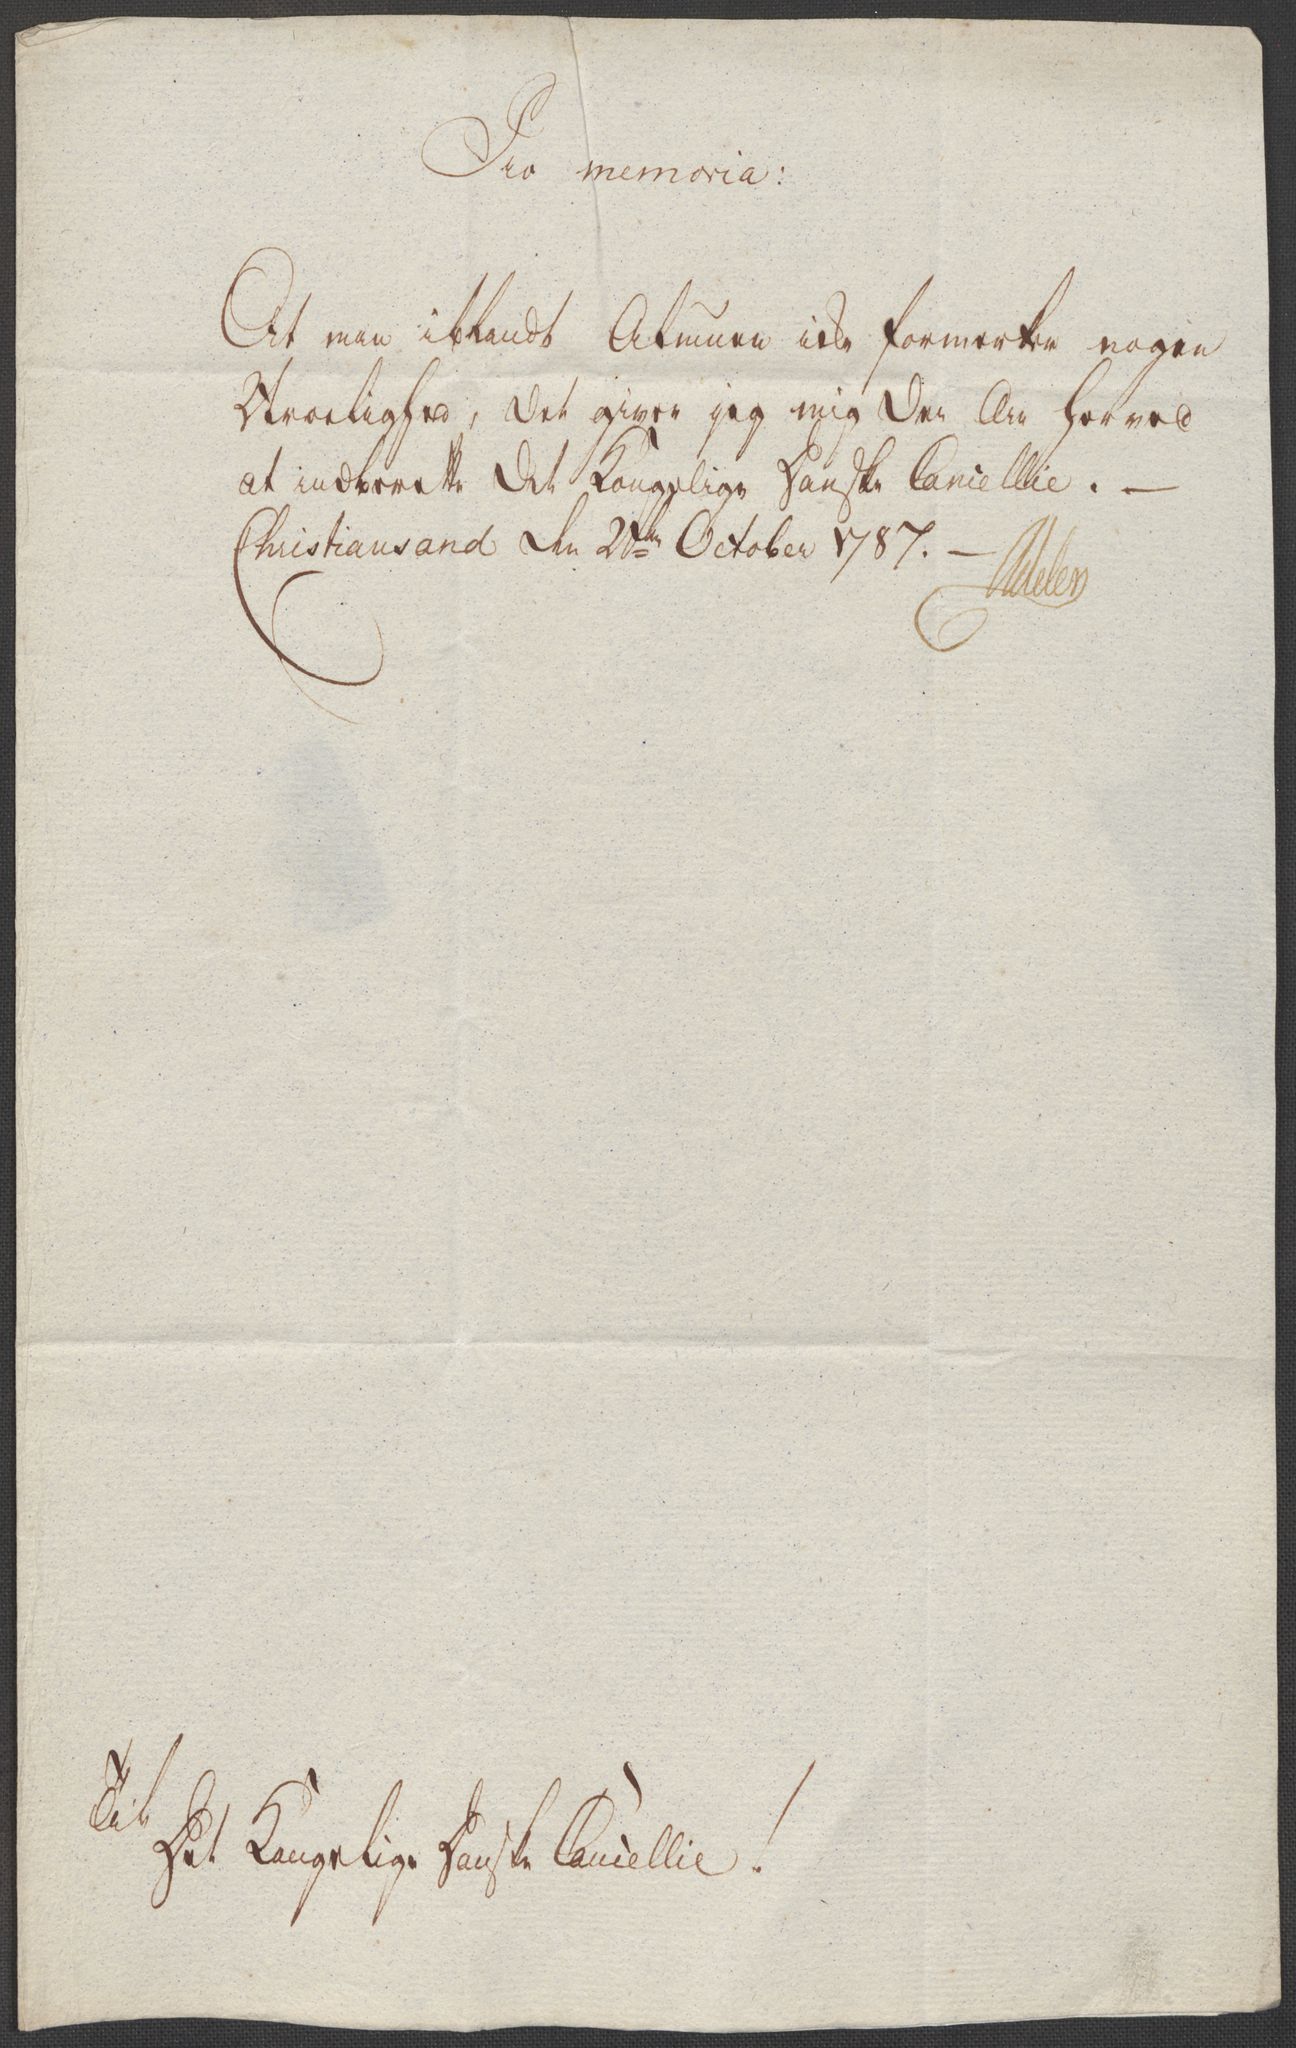 Pro memoria:
At man iblandt Almuen icke formerker nogen
Uroelighed, det giver jeg mig den Ære herved
at indberette Det Kongelige Danske Cancellie. —
Christiansand den October 1787. — Adeler
Til
Det Kongelige Danske Cancellie!